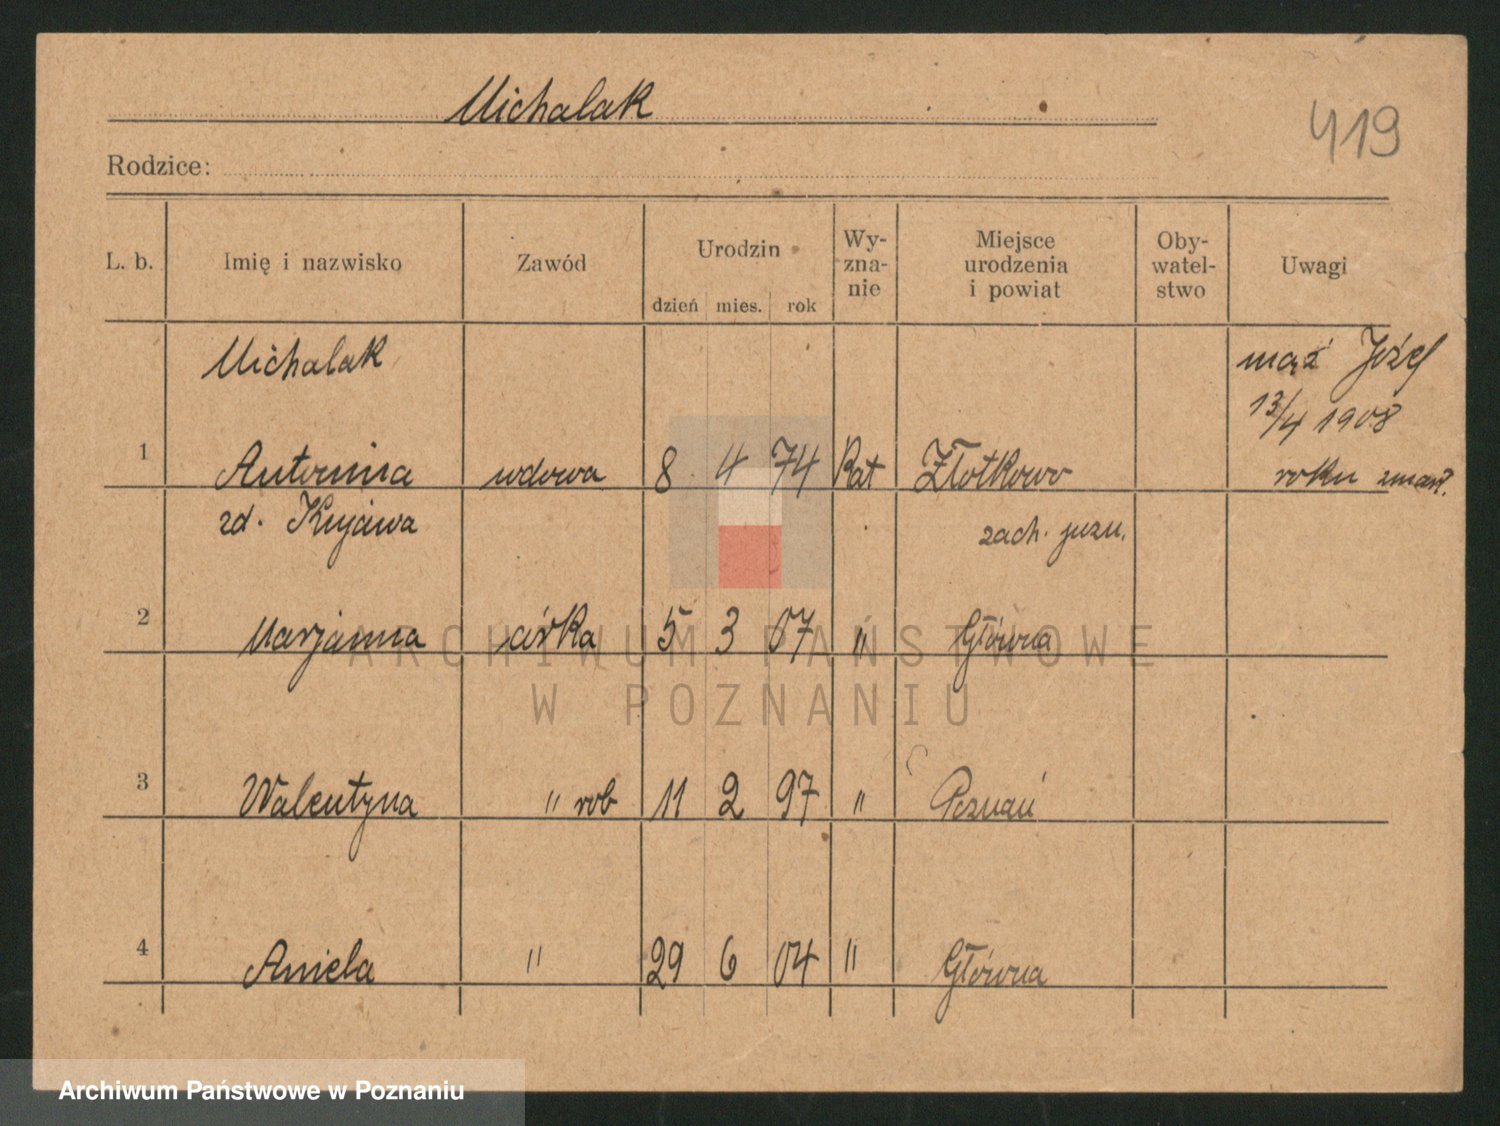 Michalak
419
Rodzice:
L. b. Imię i nazwisko Zawód Urodzin dzień mies. rok Wy-zna-nie Miejsce urodzenia i powiat Oby-watel-stwo Uwagi
Michalak mąż Józef
13/4 1908
1 Antonina wdowa 8 4 74 Kat Złotkowo roku zmarł.
zd. Kujawa zach. pozn.
2 Marjanna córka 5 3 07 " Główna
3 Walentyna " rob 11 2 97 " Poznań
4 Aniela " 29 6 04 " Główna
ARCHIWUM PAŃSTWOWE
W POZNANIU
Archiwum Państwowe w Poznaniu